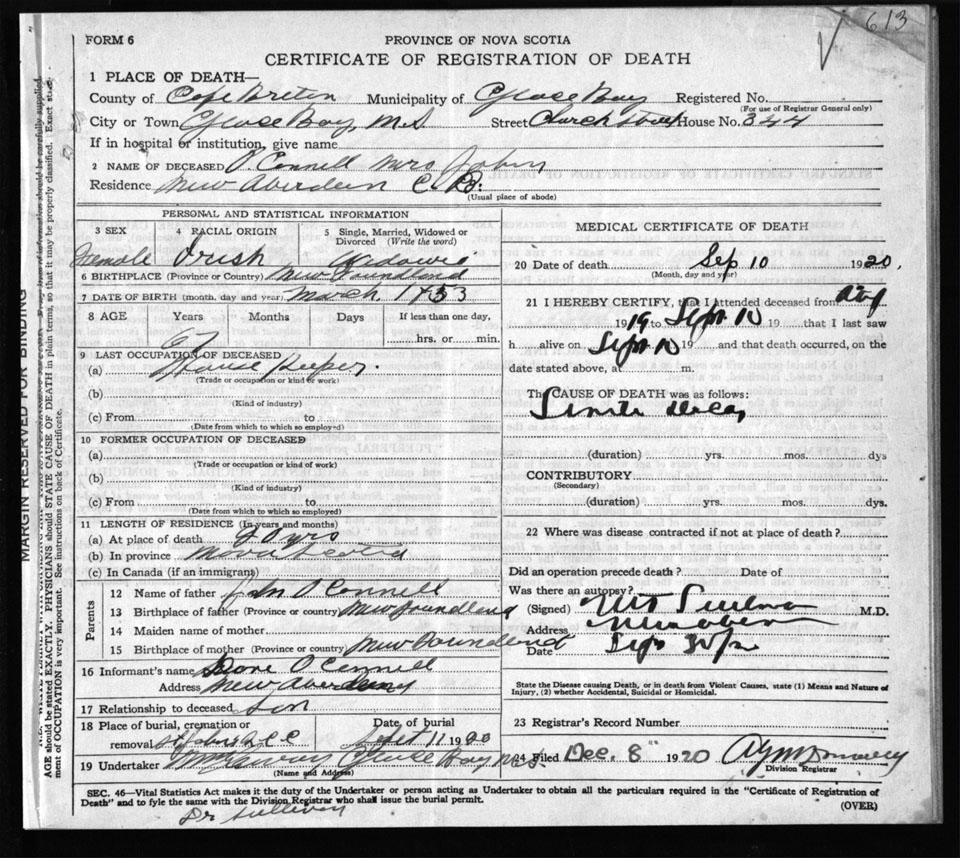 613
FORM 6
PROVINCE OF NOVA SCOTIA
CERTIFICATE OF REGISTRATION OF DEATH
1 PLACE OF DEATH—
County of Cape Breton Municipality of Glace Bay Registered No.
(For use of Registrar General only)
City or Town Glace Bay, N.S Street Church Street House No. 344
If in hospital or institution, give name
2 NAME OF DECEASED O.Connell Mrs John
Residence New Aberdeen C. B.
(Usual place of abode)
PERSONAL AND STATISTICAL INFORMATION
3 SEX 4 RACIAL ORIGIN 5 Single, Married, Widowed or Divorced (Write the word)
Female Irish
6 BIRTHPLACE (Province or Country) New Foundland
7 DATE OF BIRTH (month, day and year) March 1853
8 AGE Years Months Days If less than one day,
67 hrs. or min.
9 LAST OCCUPATION OF DECEASED
(a) House Keeper.
(Trade or occupation or kind of work)
(b)
(Kind of industry)
(c) From to
(Date from which to which so employed)
10 FORMER OCCUPATION OF DECEASED
(a)
(Trade or occupation or kind of work)
(b)
(Kind of industry)
(c) From to
(Date from which to which so employed)
11 LENGTH OF RESIDENCE (In years and months)
(a) At place of death yrs
(b) In province Nova Scotia
(c) In Canada (if an immigrant)
Parents
12 Name of father John O Connell
13 Birthplace of father (Province or country) New Foundland
14 Maiden name of mother
15 Birthplace of mother (Province or country) New Foundland
16 Informant's name O Connell
Address New Aberdeen
17 Relationship to deceased son
18 Place of burial, cremation or removal
Date of burial Sept 11 1920
19 Undertaker Glace Bay N.S.
(Name and Address)
MEDICAL CERTIFICATE OF DEATH
20 Date of death Sep 10 1920.
(Month, day and year)
21 I HEREBY CERTIFY, that I attended deceased from
19 to Sept 10 19 that I last saw
h alive on Sept 10 19 and that death occurred, on the
date stated above, at m.
The CAUSE OF DEATH was as follows:
Senile Decay
(duration) yrs. mos. dys
CONTRIBUTORY
(Secondary)
(duration) yrs. mos. dys.
22 Where was disease contracted if not at place of death?
Did an operation precede death? Date of
Was there an autopsy?
(Signed) M.D.
Address
Date Sept
State the Disease causing Death, or in death from Violent Causes, state (1) Means and Nature of
Injury, (2) whether Accidental, Suicidal or Homicidal.
23 Registrar's Record Number
24 Filed Dec. 8 1920
Division Registrar
SEC. 46—Vital Statistics Act makes it the duty of the Undertaker or person acting as Undertaker to obtain all the particulars required in the "Certificate of Registration of
Death" and to fyle the same with the Division Registrar who shall issue the burial permit.
(OVER)
Dr Sullivan
MARGIN RESERVED FOR BINDING
AGE should be stated EXACTLY. PHYSICIANS should STATE CAUSE OF DEATH in plain terms, so that it may be properly classified. Exact
ment of OCCUPATION is very important. See instructions on back of Certificate.